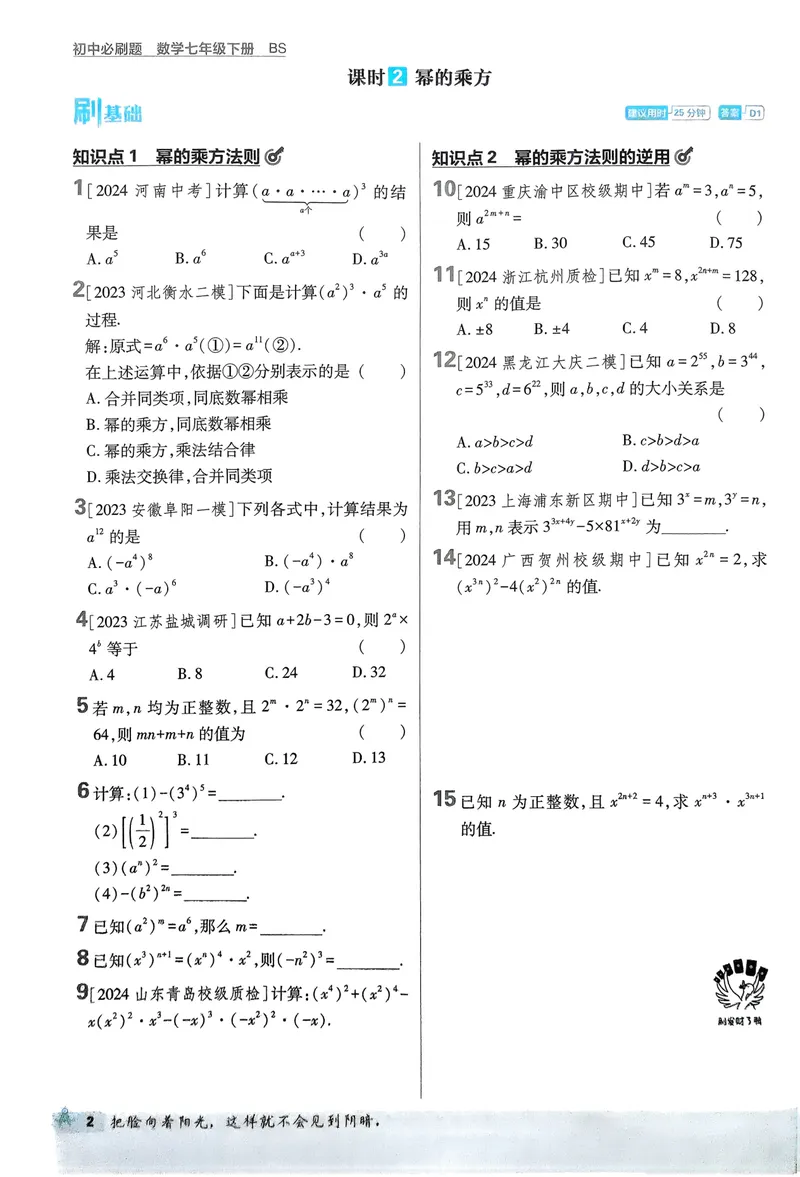 初中必刷题 数学七年级下册 BS
课时2 幂的乘方
刷基础
建议用时 25分钟 答案 D1
知识点1 幂的乘方法则
1[2024 河南中考]计算(a·a·…·a)³ 的结
a个
果是 ( )
A. a⁵ B. a⁶ C. aᵃ⁺³ D. a³ᵃ
2[2023 河北衡水二模]下面是计算(a²)³·a⁵ 的
过程.
解:原式=a⁶·a⁵(①)=a¹¹(②).
在上述运算中,依据①②分别表示的是 ( )
A. 合并同类项,同底数幂相乘
B. 幂的乘方,同底数幂相乘
C. 幂的乘方,乘法结合律
D. 乘法交换律,合并同类项
3[2023 安徽阜阳一模]下列各式中,计算结果为
a¹² 的是 ( )
A. (-a⁴)⁸ B. (-a⁴)·a⁸
C. a³·(-a)⁶ D. (-a³)⁴
4[2023 江苏盐城调研]已知 a+2b-3=0,则 2ᵃ×
4ᵇ 等于 ( )
A. 4 B. 8 C. 24 D. 32
5 若 m,n 均为正整数,且 2ᵐ·2ⁿ=32,(2ᵐ)ⁿ=
64,则 mn+m+n 的值为 ( )
A. 10 B. 11 C. 12 D. 13
6 计算:(1)-(3⁴)⁵=________.
(2)[(1/2)²]³=________.
(3)(aⁿ)²=________.
(4)-(b²)²ⁿ=________.
7 已知(a²)ᵐ=a⁶,那么 m=________.
8 已知(x³)ⁿ⁺¹=(xⁿ)⁴·x²,则(-n²)³=________.
9[2024 山东青岛校级质检]计算:(x⁴)²+(x²)⁴-
x(x²)²·x³-(-x)³·(-x²)²·(-x).
知识点2 幂的乘方法则的逆用
10[2024 重庆渝中区校级期中]若 aᵐ=3,aⁿ=5,
则 a²ᵐ⁺ⁿ= ( )
A. 15 B. 30 C. 45 D. 75
11[2024 浙江杭州质检]已知 xᵐ=8,x²ⁿ⁺ᵐ=128,
则 xⁿ 的值是 ( )
A. ±8 B. ±4 C. 4 D. 8
12[2024 黑龙江大庆二模]已知 a=2⁵⁵,b=3⁴⁴,
c=5³³,d=6²²,则 a,b,c,d 的大小关系是
( )
A. a>b>c>d B. c>b>d>a
C. b>c>a>d D. d>b>c>a
13[2023 上海浦东新区期中]已知 3ˣ=m,3ʸ=n,
用 m,n 表示 3³ˣ⁺⁴ʸ-5×81ˣ⁺²ʸ 为________.
14[2024 广西贺州校级期中]已知 x²ⁿ=2,求
(x³ⁿ)²-4(x²)²ⁿ 的值.
15 已知 n 为正整数,且 x²ⁿ⁺²=4,求 xⁿ⁺³·x³ⁿ⁺¹
的值.
刷发财了啊
2 把脸向着阳光,这样就不会见到阴暗.